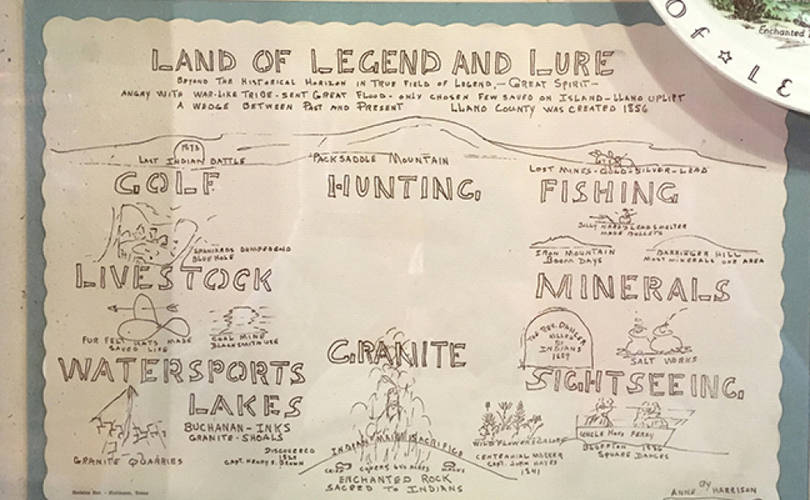 Enchanted
OF ☆ LE
LAND OF LEGEND AND LURE
BEYOND THE HISTORICAL HORIZON IN TRUE FIELD OF LEGEND,—GREAT SPIRIT—
ANGRY WITH WAR-LIKE TRIBE-SENT GREAT FLOOD-ONLY CHOSEN FEW SAVED ON ISLAND-LLANO UPLIFT
A WEDGE BETWEEN PAST AND PRESENT LLANO COUNTY WAS CREATED 1856
1873
LAST INDIAN BATTLE
PACKSADDLE MOUNTAIN
LOST MINES-GOLD-SILVER-LEAD
GOLF HUNTING FISHING
BILLY
LEAD SMELTER
MADE BULLETS
SPANIARDS
BLUE HOLE
IRON MOUNTAIN
BOOM DAYS
BARRINGER HILL
MOST MINERALS ONE AREA
LIVESTOCK MINERALS
FUR FELT HATS MADE
SAVED LIFE
COAL MINE
BLACKSMITH USE
KILLED
BY
INDIANS
SALT WORKS
GRANITE
WATERSPORTS
SIGHTSEEING
LAKES
BUCHANAN-INKS
GRANITE-SHOALS
GRANITE QUARRIES
DISCOVERED
CAPT. HENRY S. BROWN
INDIAN SACRIFICE
COVERS 640 ACRES
ENCHANTED ROCK
SACRED TO INDIANS
WILD FLOWERS
CENTENNIAL MARKER
CAPT. JOHN HAYES
1841
UNCLE FERRY
BLUFFTON
SQUARE DANCES
BY
ANNE HARRISON